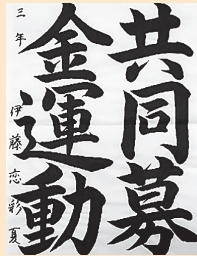 共同募
金運動
三年
伊藤恋彩夏